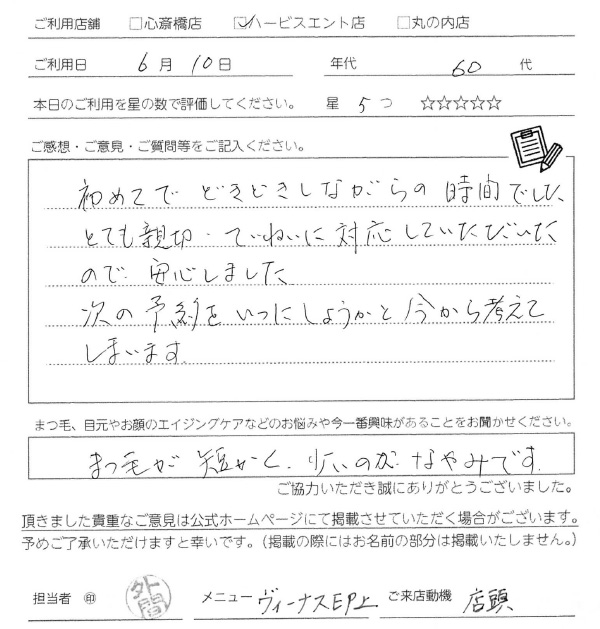 ご利用店舗 □心斎橋店 ☑ハービスエント店 □丸の内店
ご利用日 6月10日 年代 60代
本日のご利用を星の数で評価してください。 星 5つ ☆☆☆☆☆
ご感想・ご意見・ご質問等をご記入ください。
初めてで どきどきしながらの 時間でした
とても親切・ていねいに 対応していただいた
ので 安心しました
次の予約をいつにしようかと 今から考えて
しまいます
まつ毛、目元やお顔のエイジングケアなどのお悩みや今一番興味があることをお聞かせください。
まつ毛が 短かく、少いのが なやみです
ご協力いただき誠にありがとうございました。
頂きました貴重なご意見は公式ホームページにて掲載させていただく場合がございます。
予めご了承いただけますと幸いです。(掲載の際にはお名前の部分は掲載いたしません。)
担当者 ㊞ 外間 メニュー ヴィーナスEP上 ご来店動機 店頭